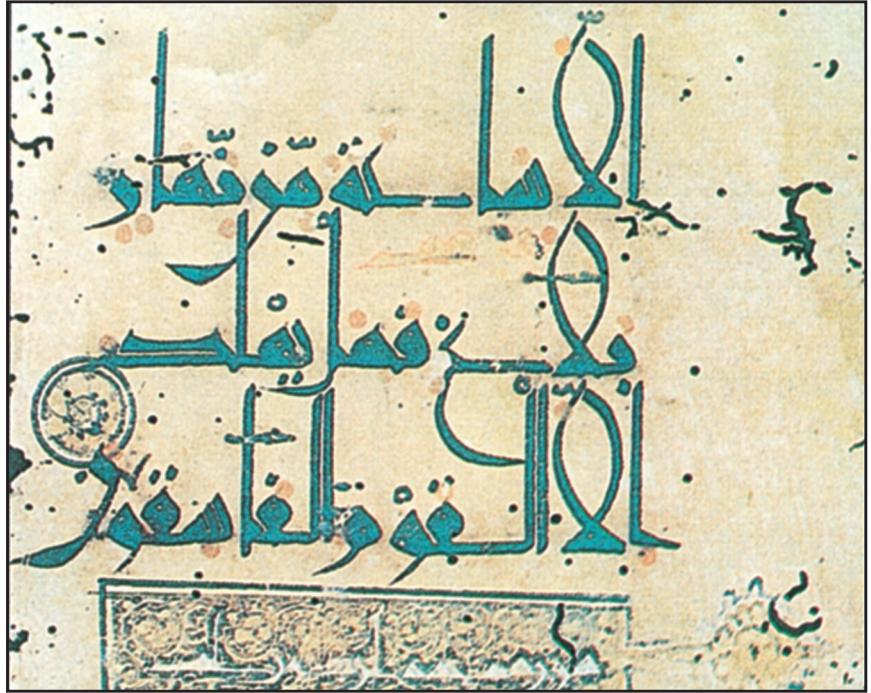 الا ساعة من نهار
بلاغ فهل يهلك
الا القوم الفاسقون